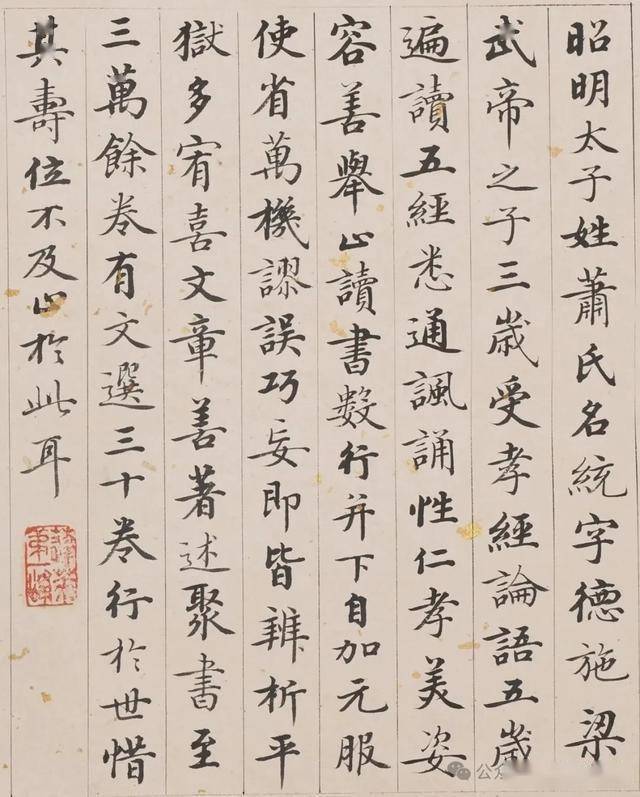 昭明太子姓蕭氏名統字德施梁
武帝之子三歲受孝經論語五歲
遍讀五經悉通諷誦性仁孝美姿
容善舉止讀書數行并下自加元服
使省萬機謬誤巧妄即皆辨析平
獄多宥喜文章善著述聚書至
三萬餘卷有文選三十卷行於世惜
其壽位不及止於此耳
公众